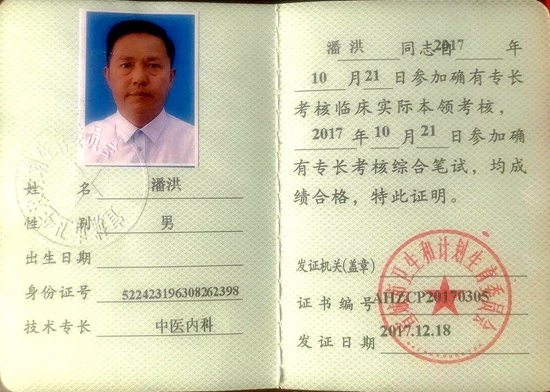 姓 名 潘洪
性 别 男
出生日期
身份证号 522423196308262398
技术专长 中医内科
潘洪 同志自2017 年
10 月21 日参加确有专长
考核临床实际本领考核，
2017 年10 月21 日参加确
有专长考核综合笔试，均成
绩合格，特此证明。
发证机关(盖章)
证书编号AHZCP20170305
发证日期 2017.12.18
市卫生和计划生育委员会